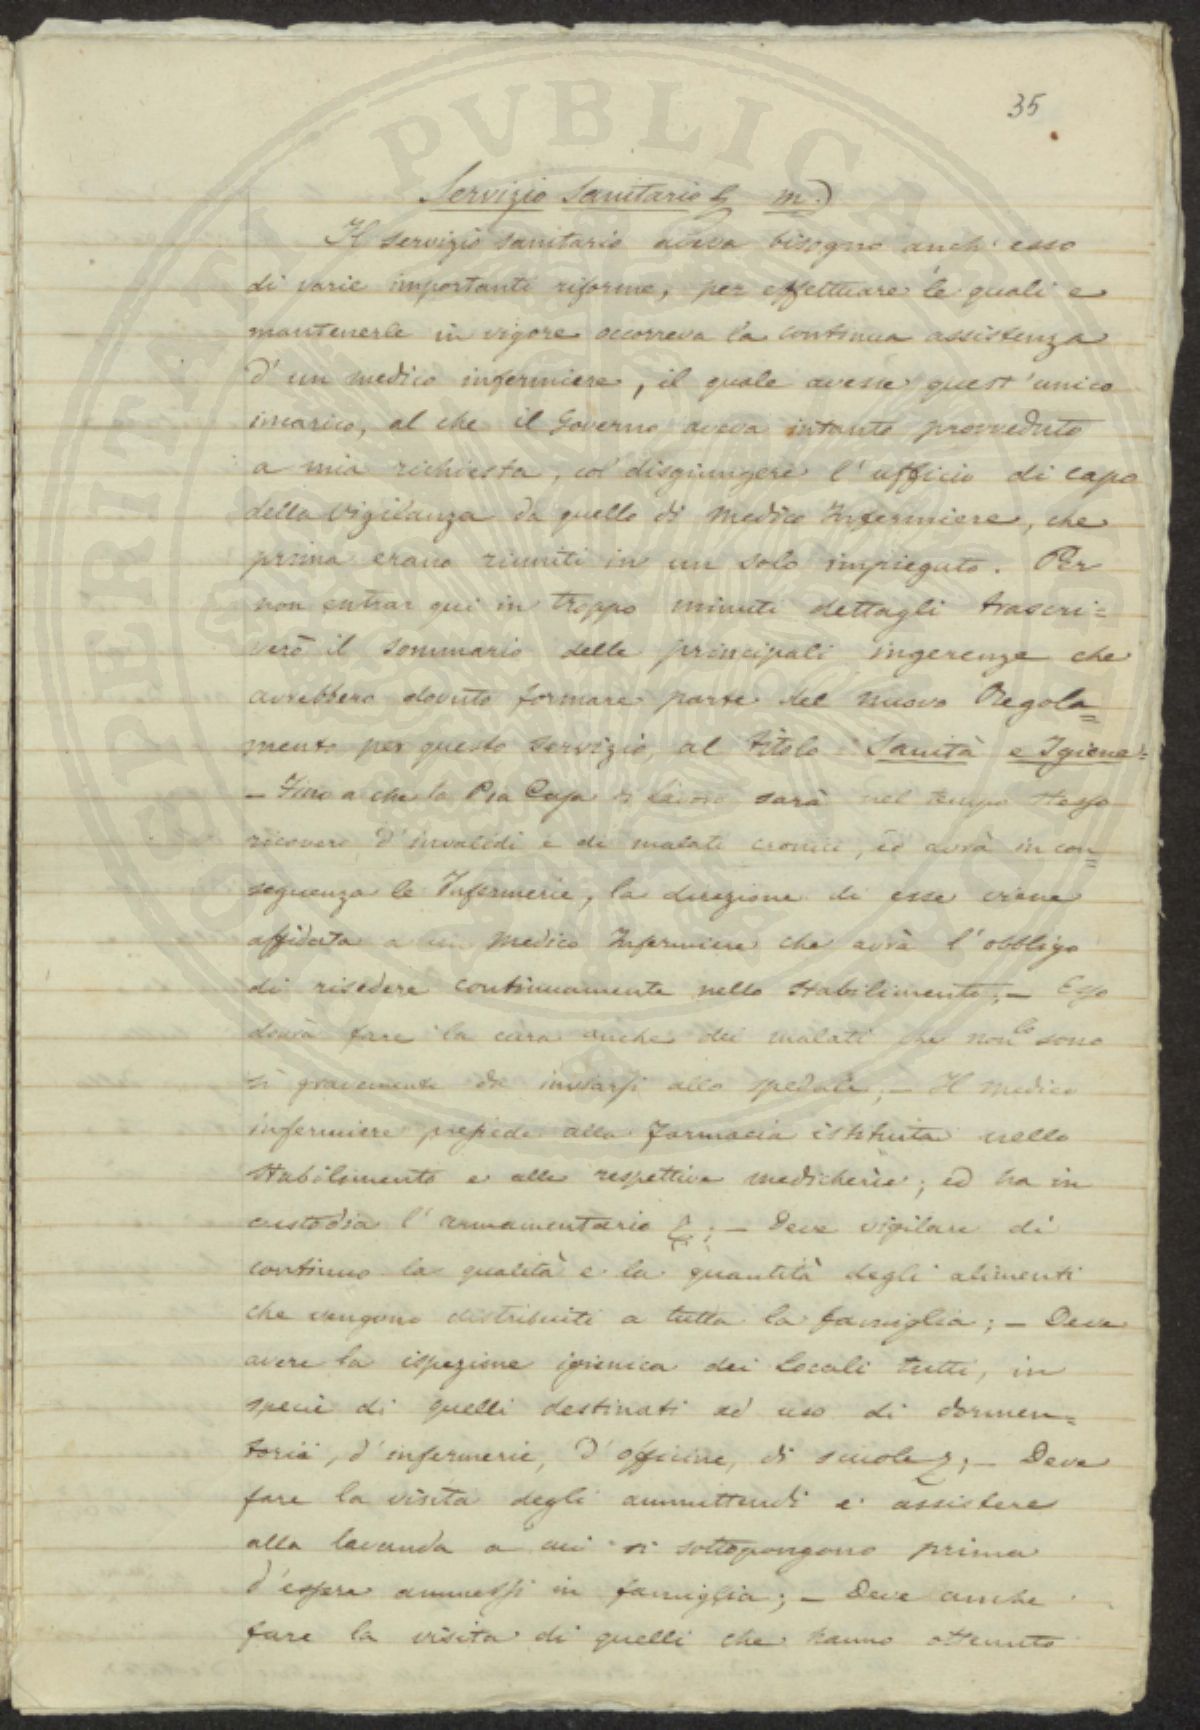 35
Servizio sanitario & m.)
Il servizio sanitario aveva bisogno anch'esso
di varie importanti riforme, per effettuare le quali e
mantenerle in vigore occorreva la continua assistenza
d'un medico infermiere, il quale avesse quest'unico
incarico, al che il Governo aveva intanto provveduto
a mia richiesta, col disgiungere l'ufficio di capo
della Vigilanza da quello di Medico Infermiere, che
prima erano riuniti in un solo impiegato. Per
non entrar qui in troppo minuti dettagli trascri=
verò il sommario delle principali ingerenze che
avrebbero dovuto formare parte del nuovo Regola=
mento per questo servizio, al titolo Sanità e Igiene=
– Fino a che la Pia Casa di Lavoro sarà nel tempo stesso
ricovero d'invalidi e di malati cronici, ed avrà in con=
seguenza le Infermerie, la direzione di esse viene
affidata a un Medico Infermiere che avrà l'obbligo
di risedere continuamente nello Stabilimento; – Esso
dovrà fare la cura anche dei malati che non lo sono
sì gravemente da inviarsi allo spedale; – Il Medico
infermiere presiede alla farmacia istituita nello
Stabilimento e alle respettive medicherie; ed ha in
custodia l'armamentario &; – Deve vigilare di
continuo la qualità e la quantità degli alimenti
che vengono distribuiti a tutta la famiglia; – Deve
avere la ispezione igienica dei locali tutti, in
specie di quelli destinati ad uso di dormen=
torii, d'infermerie, d'officine, di scuole &; – Deve
fare la visita degli ammittendi e assistere
alla lavanda a cui si sottopongono prima
d'essere ammessi in famiglia; – Deve anche
fare la visita di quelli che hanno ottenuto